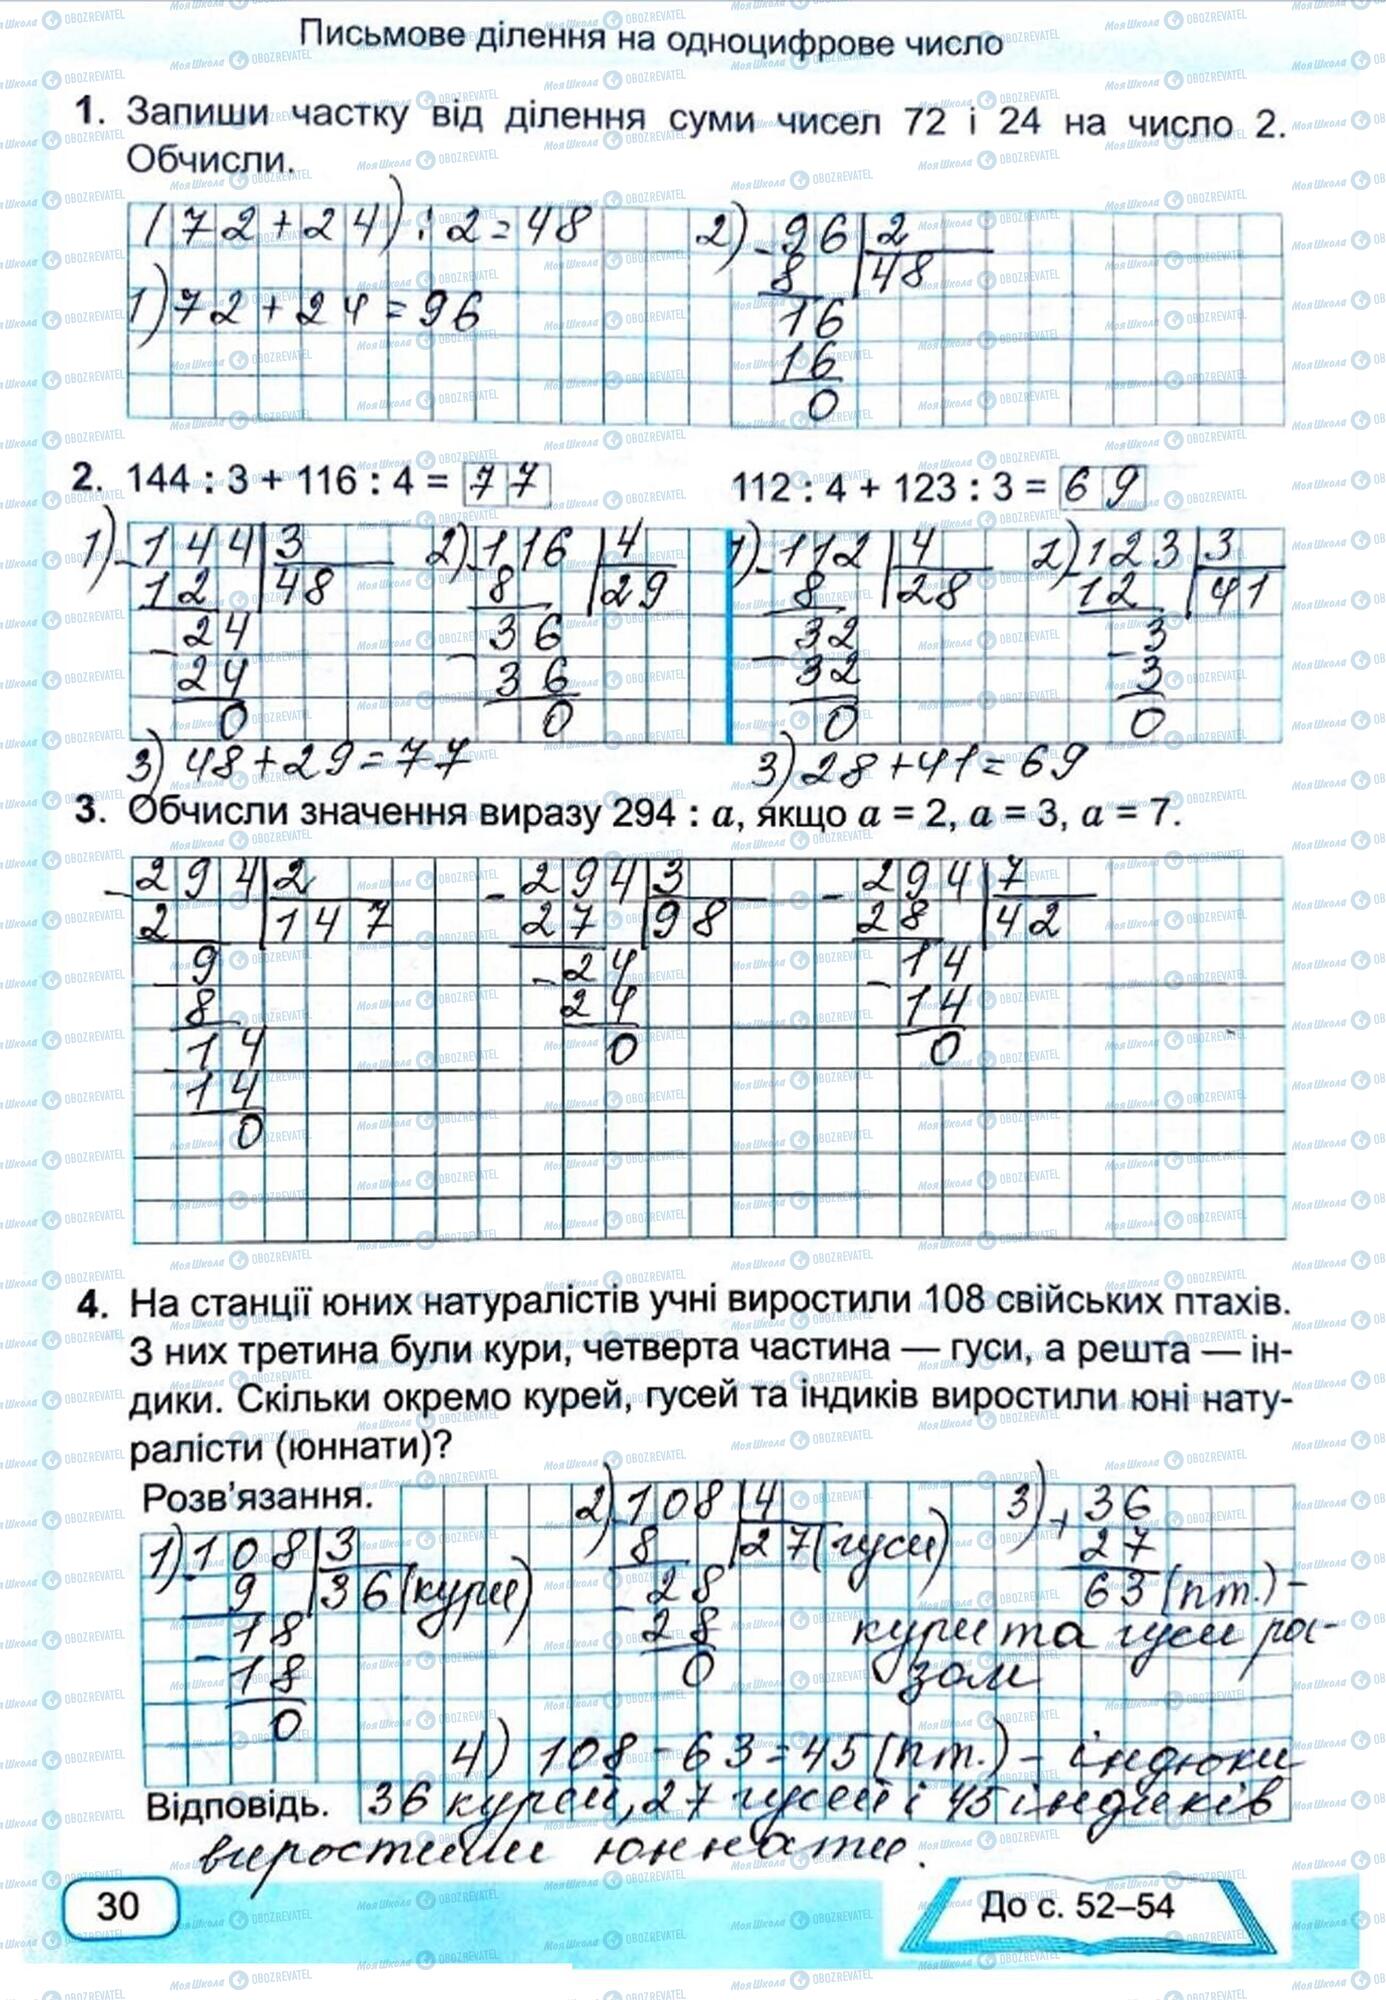 Письмове ділення на одноцифрове число
1. Запиши частку від ділення суми чисел 72 і 24 на число 2.
Обчисли.
(72+24):2=48
1) 72+24=96
2) - 96 | 2
8 | 48
16
16
0
2. 144 : 3 + 116 : 4 = 77
1) - 144 | 3
12 | 48
- 24
24
0
2) - 116 | 4
8 | 29
- 36
36
0
3) 48+29=77
112 : 4 + 123 : 3 = 69
1) - 112 | 4
8 | 28
- 32
32
0
2) 123 | 3
12 | 41
- 3
3
0
3) 28+41=69
3. Обчисли значення виразу 294 : a, якщо a = 2, a = 3, a = 7.
- 294 | 2
2 | 147
- 9
8
- 14
14
0
- 294 | 3
27 | 98
- 24
24
0
- 294 | 7
28 | 42
- 14
14
0
4. На станції юних натуралістів учні виростили 108 свійських птахів.
З них третина були кури, четверта частина — гуси, а решта — ін-
дики. Скільки окремо курей, гусей та індиків виростили юні нату-
ралісти (юннати)?
Розв'язання.
1) - 108 | 3
9 | 36 (кури)
- 18
18
0
2) - 108 | 4
8 | 27 (гуси)
- 28
28
0
3) + 36
27
63 (пт.) -
кури та гуси ра-
зом
4) 108 - 63 = 45 (пт.) - індюки
Відповідь. 36 курей, 27 гусей і 45 індиків
виростили юннати.
30
До с. 52–54
МояШкола OBOZREVATEL